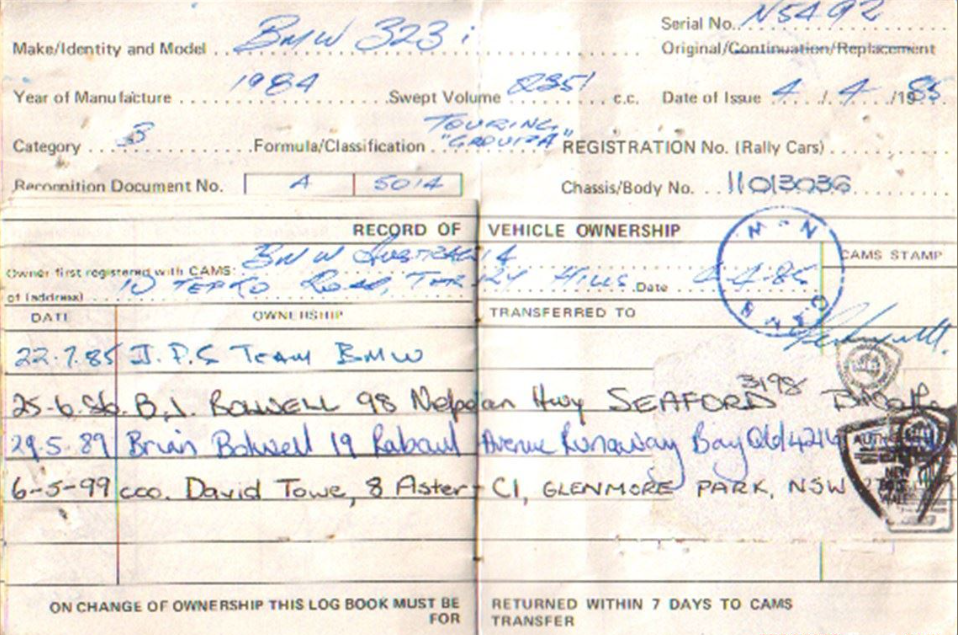 Serial No. N5492
Make/Identity and Model BMW 323i Original/Continuation/Replacement
Year of Manufacture 1984 Swept Volume 2351 c.c. Date of Issue 4/4/1985
Category 3 Formula/Classification TOURING "GROUP A" REGISTRATION No. (Rally Cars)
Recognition Document No. A 5014 Chassis/Body No. 11013036
RECORD OF VEHICLE OWNERSHIP
CAMS STAMP
Owner first registered with CAMS: BMW AUSTRALIA
of (address) 10 TEPKO Road, TERREY HILLS Date 4.4.85
DATE OWNERSHIP TRANSFERRED TO
22.7.85 J.P.S TEAM BMW
25-6-86. B.J. BOLWELL 98 Nepean Hwy SEAFORD 3198
29-5-89 Brian Bolwell 19 Rabaul Avenue Runaway Bay Qld 4216
6-5-99 cco. David Towe, 8 Aster Cl, GLENMORE PARK, NSW
ON CHANGE OF OWNERSHIP THIS LOG BOOK MUST BE RETURNED WITHIN 7 DAYS TO CAMS
FOR TRANSFER